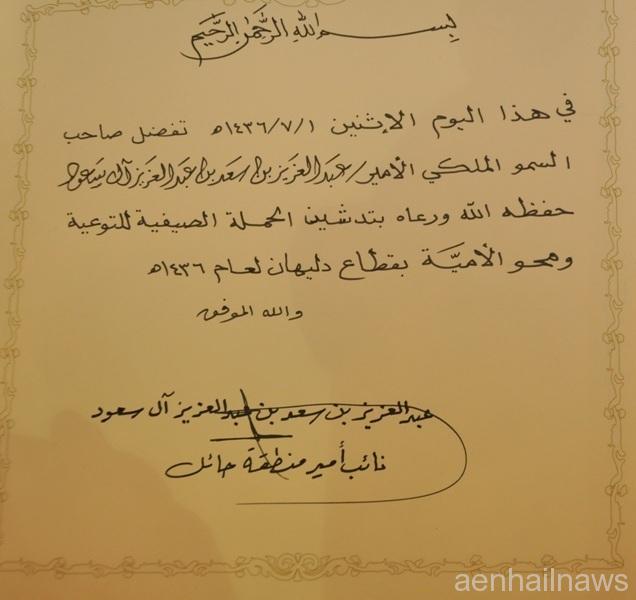 بسم الله الرحمن الرحيم
في هذا اليوم الإثنين ١/٧/١٤٣٦ه تفضل صاحب
السمو الملكي الأمير عبدالعزيز بن سعد بن عبدالعزيز آل سعود
حفظه الله ورعاه بتدشين الحملة الصيفية للتوعية
ومحو الأميَّة بقطاع دليهان لعام ١٤٣٦ه
والله الموفق
عبدالعزيز بن سعد بن عبدالعزيز آل سعود
نائب أمير منطقة حائل
aenhailnaws